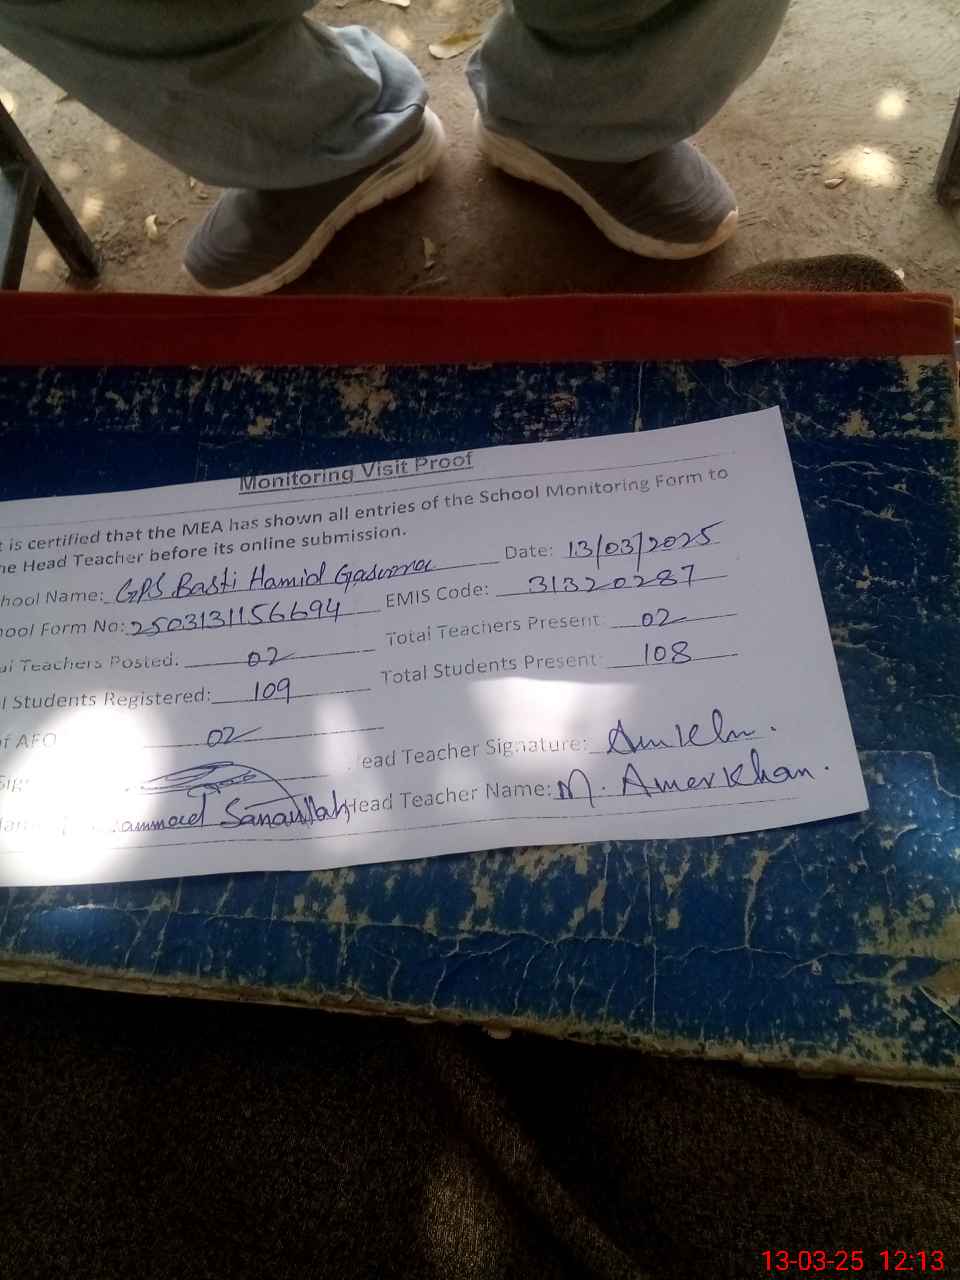 Monitoring Visit Proof
t is certified that the MEA has shown all entries of the School Monitoring Form to
he Head Teacher before its online submission.
hool Name: GPS Basti Hamid Date: 13/03/2025
hool Form No: 2503131156694 EMIS Code: 31320287
al Teachers Posted: 02 Total Teachers Present: 02
l Students Registered: 109 Total Students Present: 108
of AEO 02
Sig ead Teacher Signature:
ammad Sanaullah Head Teacher Name: M. Amer Khan.
13-03-25 12:13